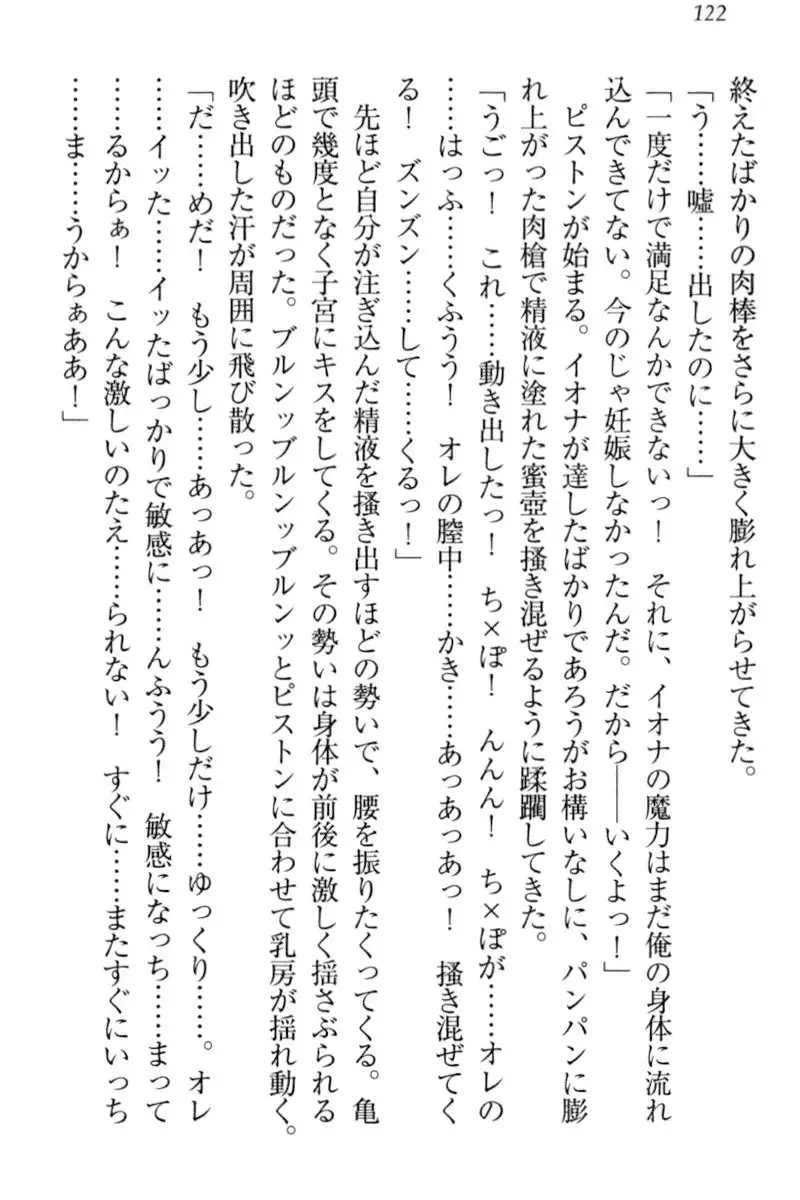 122
終えたばかりの肉棒をさらに大きく膨れ上がらせてきた。
「う……嘘……出したのに……」
「一度だけで満足なんかできないっ！　それに、イオナの魔力はまだ俺の身体に流れ
込んできてない。今のじゃ妊娠しなかったんだ。だから――いくよっ！」
ピストンが始まる。イオナが達したばかりであろうがお構いなしに、パンパンに膨
れ上がった肉槍で精液に塗れた蜜壺を掻き混ぜるように蹂躙してきた。
「うごっ！　これ……動き出したっ！　ち×ぽ！　んんん！　ち×ぽが……オレの
……はっふ……くふうう！　オレの膣中……かき……あっあっあっ！　掻き混ぜてく
る！　ズンズン……して……くるっ！」
先ほど自分が注ぎ込んだ精液を掻き出すほどの勢いで、腰を振りたくってくる。亀
頭で幾度となく子宮にキスをしてくる。その勢いは身体が前後に激しく揺さぶられる
ほどのものだった。ブルンッブルンッブルンッとピストンに合わせて乳房が揺れ動く。
吹き出した汗が周囲に飛び散った。
「だ……めだ！　もう少し……あっあっ！　もう少しだけ……ゆっくり……。オレ
……イッた……イッたばっかりで敏感に……んふうう！　敏感になっち……まって
……るからぁ！　こんな激しいのたえ……られない！　すぐに……またすぐにいっち
……ま……うからぁああ！」